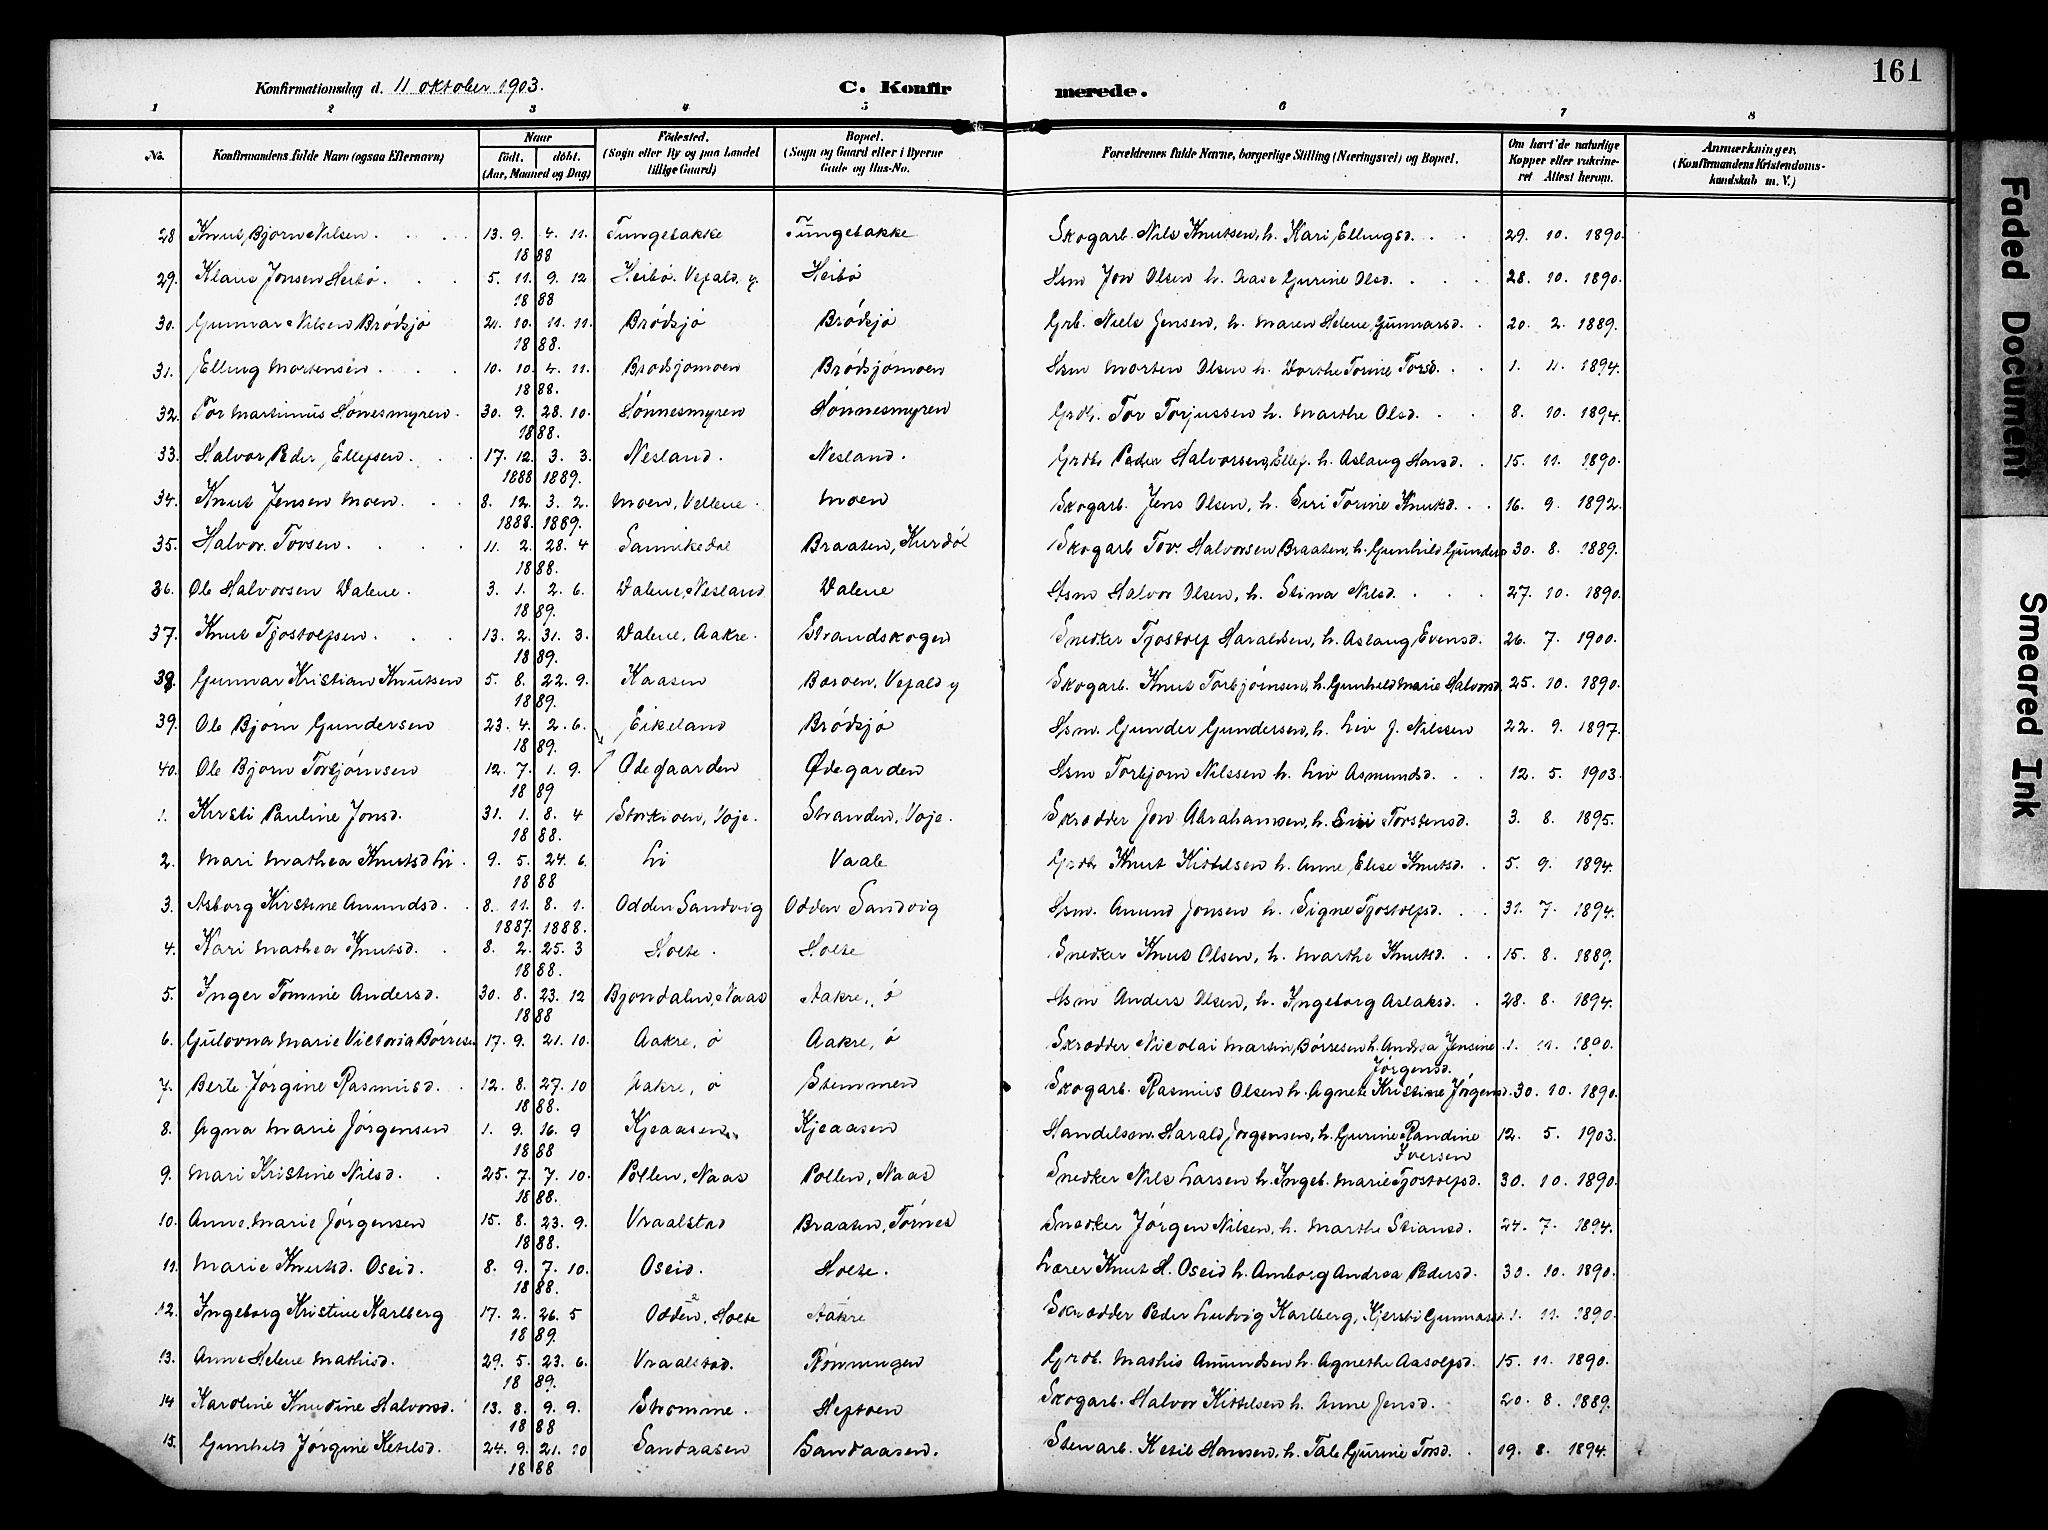 161
Konfirmationsdag d. 11 oktober 1903. C. Konfir merede.
1 2 3 4 5 6 7 8
No. Konfirmandens fulde Navn (ogsaa Efternavn) Naar født. døbt. (Aar, Maaned og Dag) Fødested. (Sogn eller By og paa Landet tillige Gaard) Bopæl. (Sogn og Gaard eller i Byerne Gade og Hus-No. Forældrenes fulde Navne, borgerlige Stilling (Næringsvei) og Bopæl. Om havt de naturlige Kopper eller vakcineret Attest herom. Anmærkninger, (Konfirmandens Kristendomskundskab m. V.)
28 Knut Bjørn Nilsen. 13. 9. 4. 11. 1888 Tungebakke Tungebakke Skogarb. Nils Knutsen, h. Kari Ellingsd. 29. 10. 1890.
29. Klaus Jonsen Heibø. 5. 11. 9. 12 1888 Heibø. Vefald. y. Heibø Hsm Jon Olsen h. Aase Gurine Olsd. 28. 10. 1890.
30. Gunnar Nilsen Brødsjø 21. 10. 11. 11. 1888. Brødsjø Brødsjø Grb. Niels Jensen, h. Maren Helene Gunnarsd. 20. 2. 1889.
31. Elling Mortensen. 10. 10. 4. 11. 1888. Brødsjømoen Brødsjømoen Hsm Morten Olsen h. Dorthe Torine Torsd. 1. 11. 1894.
32. Tor Martinius Hønesmyren. 30. 9. 28. 10. 1888. Hønnesmyren Hønnesmyren Grdb. Tor Torjussen h. Marthe Olsd. 8. 10. 1894.
33. Halvor Peder Ellefsen. 17. 12. 3. 3. 1888 1889. Nesland. Nesland. Grdb Peder Halvorsen, Ellef. h. Aslaug Hansd. 15. 11. 1890.
34. Knut Jensen Moen. 8. 12. 3. 2. 1888. 1889. Moen, Vellene. Moen Skogarb. Jens Olsen, h. Siri Torine Knutsd. 16. 9. 1892.
35. Halvor Torsen. 11. 2. 28. 4 1888. Sannikedal Braaten, Kurdøl Skogarb Tor Halvorsen Braaten, h. Gunhild Gunders 30. 8. 1889.
36. Ole Halvorsen Valene. 3. 1. 2. 6. 1889. Valene, Nesland Valene Hsm Halvor Olsen, h. Stina Nilsd. 27. 10. 1890.
37. Knut Tjostolfsen. 13. 2. 31. 3. 1889. Valene, Aakre. Strandskogen Snedker Tjostolf Haraldsen, h. Aslaug Evensd. 26. 7. 1900.
38. Gunnar Kristian Knutsen 5. 8. 22. 9. 1889. Kaasen Baroen, Vefald y Skogarb. Knut Torbjørnsen, h. Gunhild Marie Halvorsd. 25. 10. 1890.
39. Ole Bjørn Gundersen 23. 4. 2. 6. 1889. Eikeland Brødsjø Hsm. Gunder Gundersen, h. Liv J. Nilssen 22. 9. 1897.
40. Ole Bjørn Torbjørnsen 12. 7. 1. 9. 1889 Ødegaarden Ødegarden Hsm Torbjørn Nilssen h. Liv Asmundsd. 12. 5. 1903.
1. Kirsti Pauline Jonsd. 31. 1. 8. 4 1888. Straanden, Voje. Skrædder Jon Abrahamsen, h. Siri Torstensd. 3. 8. 1895.
2. Mari Mathea Knutsd Li. 9. 5. 24. 6. 1888 Li Vaale Grdb Knut Kittilsen h. Anne Elise Knutsd. 5. 9. 1894.
3. Asborg Kirstine Anundsd. 8. 11. 8. 1. 1887. 1888. Odden Sandvig Odden Sandvig Hsm. Anund Jonsen h. Signe Tjostolfsd. 31. 7. 1894.
4. Kari Mathea Knutsd. 8. 2. 25. 3 1888. Holte. Holte Snedker Knut Olsen, h. Marthe Knutsd. 15. 8. 1889.
5. Inger Tomine Andersd. 30. 8. 23. 12 1888 Bjøndalen, Naas Aakre, ø Hsm Anders Olsen, h. Ingeborg Aslaksd. 28. 8. 1894.
6. Gulovna Marie Victoria Børresen 17. 9. 21. 10. Aakre, ø Aakre, ø Skrædder Nicolai Martin Børresen h. Andrea Jensine Jørgensd. 1. 11. 1890.
7. Berte Jørgine Rasmusd. 12. 8. 27. 10 1888. Aakre, ø Stemmen Skogarb. Rasmus Olsen h. Agnete Kristine Jørgensd. 30. 10. 1890.
8. Agna Marie Jørgensen 1. 9. 16. 9 1888 Kjeaasen Kjeaasen Handelsm. Harald Jørgensen, h. Gurine Randine Iversen 12. 5. 1903.
9. Mari Kristine Nilsd. 25. 7. 7. 10. 1888. Pollen, Naas Pollen, Naas Snedker Nils Larsen h. Ingeb. Marie Tjostolfsd. 30. 10. 1890.
10. Anne Marie Jørgensen 15. 8. 23. 9. 1888. Vraalstad Braaten, Tørnes Snedker Jørgen Nilsen, h. Marthe Stiansd. 24. 7. 1894.
11. Marie Knutsd. Oseid. 8. 9. 7. 10. 1888. Oseid. Holte. Lærer Knut H. Oseid h. Amborg Andrea Pedersd. 30. 10. 1890.
12. Ingeborg Kristine Karlberg 17. 2. 26. 5 1889. Odden, Holte Aakre Skrædder Peder Ludvig Karlberg, Kjersti Gunnarsd. 1. 11. 1890.
13. Anne Helene Mathisd. 29. 5. 23. 6. 1889. Vraalstad. Rønningen Grdb. Mathis Amundsen h. Agnethe Aasolfsd. 15. 11. 1890.
14 Karoline Knudine Halvorsd. 13. 8. 9. 9. 1888 Strømme. Heftøen Skogarb. Halvor Kittelsen h. Anne Jensd. 20. 8. 1889.
15. Gunhild Jørgine Ketilsd. 24. 9. 21. 10 1888 Sandaasen Sandaasen. Stenarb. Ketil Hansen, h. Tale Gurine Torsd. 19. 8. 1894.
Faded Document
Smeared Ink